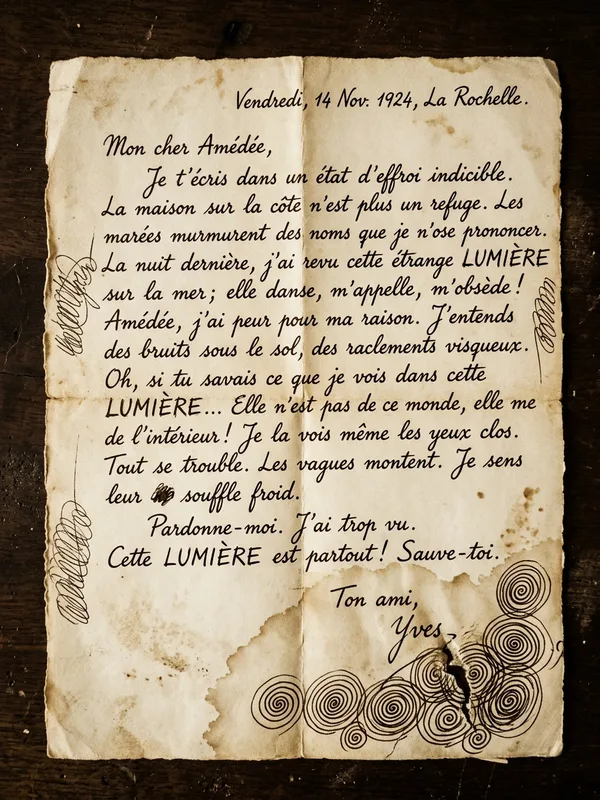 Vendredi, 14 Nov. 1924, La Rochelle.
Mon cher Amédée,
Je t'écris dans un état d'effroi indicible.
La maison sur la côte n'est plus un refuge. Les
marées murmurent des noms que je n'ose prononcer.
La nuit dernière, j'ai revu cette étrange LUMIÈRE
sur la mer; elle danse, m'appelle, m'obsède!
Amédée, j'ai peur pour ma raison. J'entends
des bruits sous le sol, des raclements visqueux.
Oh, si tu savais ce que je vois dans cette
LUMIÈRE... Elle n'est pas de ce monde, elle me
de l'intérieur! Je la vois même les yeux clos.
Tout se trouble. Les vagues montent. Je sens
leur souffle froid.
Pardonne-moi. J'ai trop vu.
Cette LUMIÈRE est partout! Sauve-toi.
Ton ami,
Yves